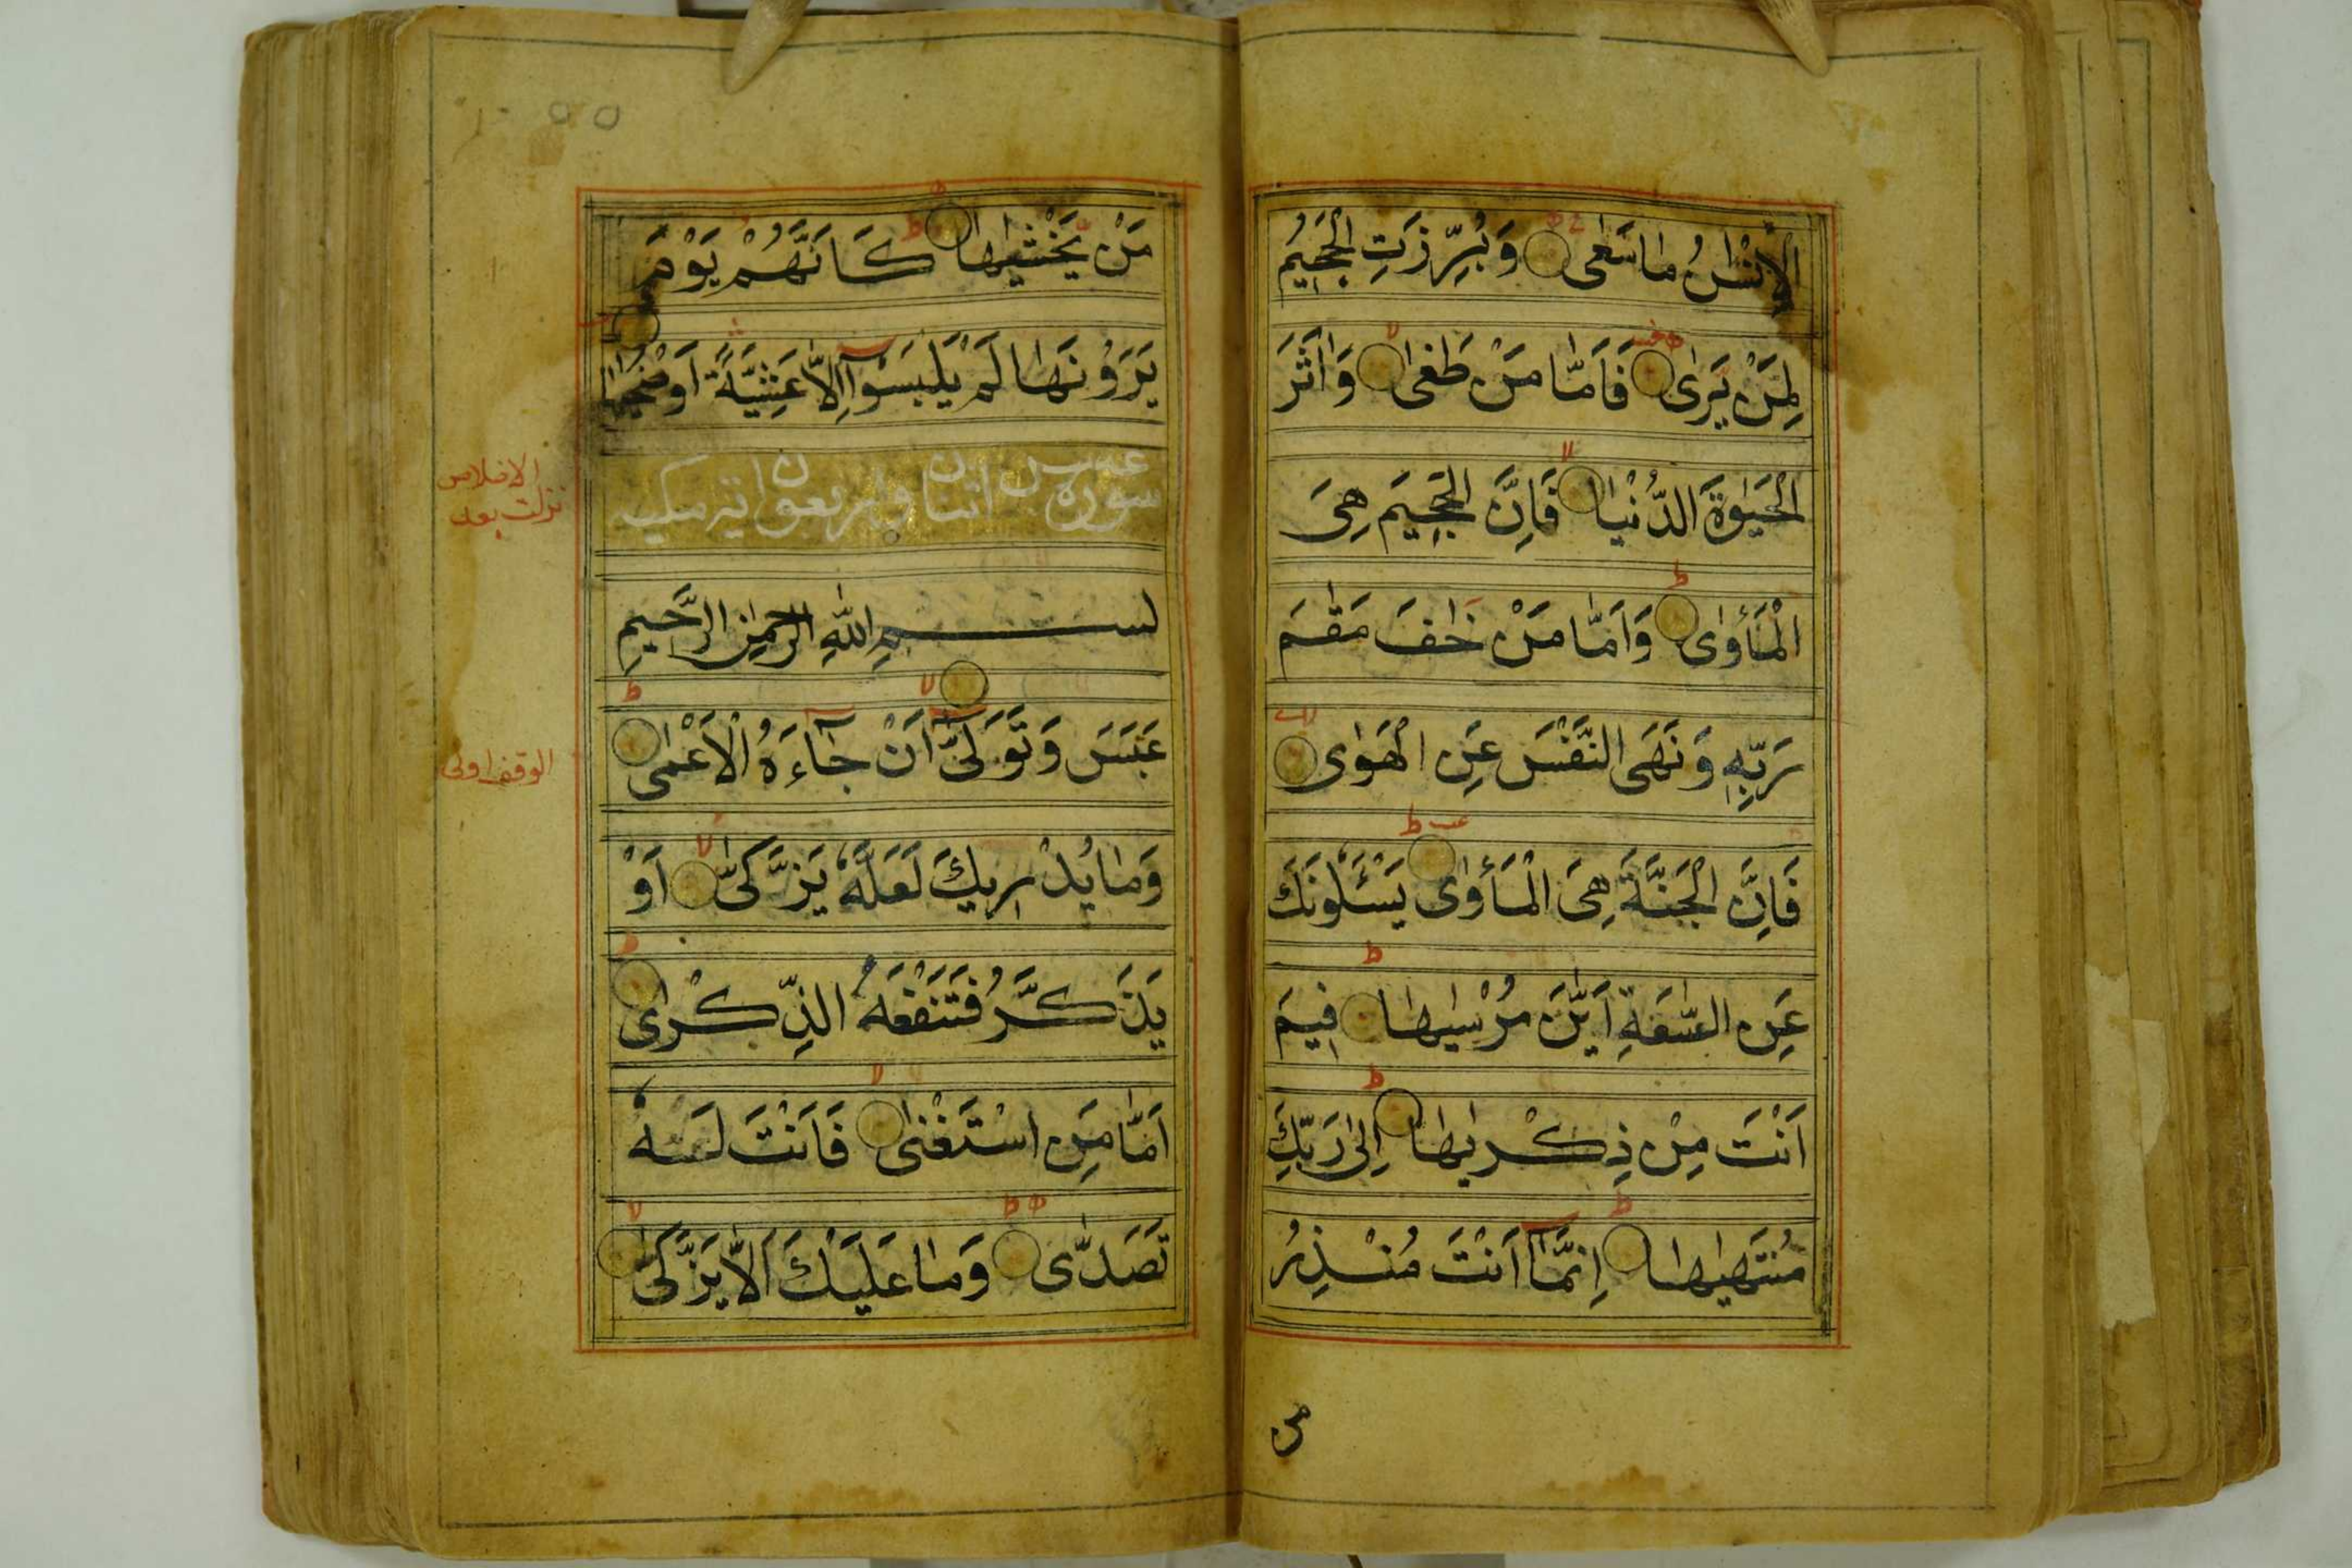 الْاِنْسٰنُ مٰا سَعٰى وَبُرِّزَتِ الْجَحِيْمُ
لِمَنْ يَرٰى فَاَمّٰا مَنْ طَغٰى وَاٰثَرَ
الْحَيٰوةَ الدُّنْيٰا فَاِنَّ الْجَحِيْمَ هِىَ
الْمَأْوٰى وَاَمّٰا مَنْ خٰافَ مَقٰمَ
رَبِّهٖ وَنَهَى النَّفْسَ عَنِ الْهَوٰى
فَاِنَّ الْجَنَّةَ هِىَ الْمَأْوٰى يَسْئَلُوْنَكَ
عَنِ السّٰعَةِ اَيّٰنَ مُرْسٰيهٰا فِيْمَ
اَنْتَ مِنْ ذِكْرٰيهٰا اِلٰى رَبِّكَ
مُنْتَهٰيهٰا اِنَّمٰا اَنْتَ مُنْذِرُ
من
مَنْ يَّخْشٰيهٰا كَاَنَّهُمْ يَوْمَ
يَرَوْنَهٰا لَمْ يَلْبَسُوْا اِلّٰا عَشِيَّةً اَوْ ضُحٰيهٰا
سورة عبس اثنان واربعون اية مكية
الاخلاص
نزلت بعد
بسم اللّٰهِ الرَّحْمٰنِ الرَّحِيْمِ
عَبَسَ وَتَوَلّٰى اَنْ جٰاءَهُ الْاَعْمٰى
الوقف اولى
وَمٰا يُدْرِيْكَ لَعَلَّهٗ يَزَّكّٰى اَوْ
يَذَّكَّرُ فَتَنْفَعَهُ الذِّكْرٰى
اَمّٰا مَنِ اسْتَغْنٰى فَاَنْتَ لَهٗ
تَصَدّٰى وَمٰا عَلَيْكَ اَلّٰا يَزَّكّٰى